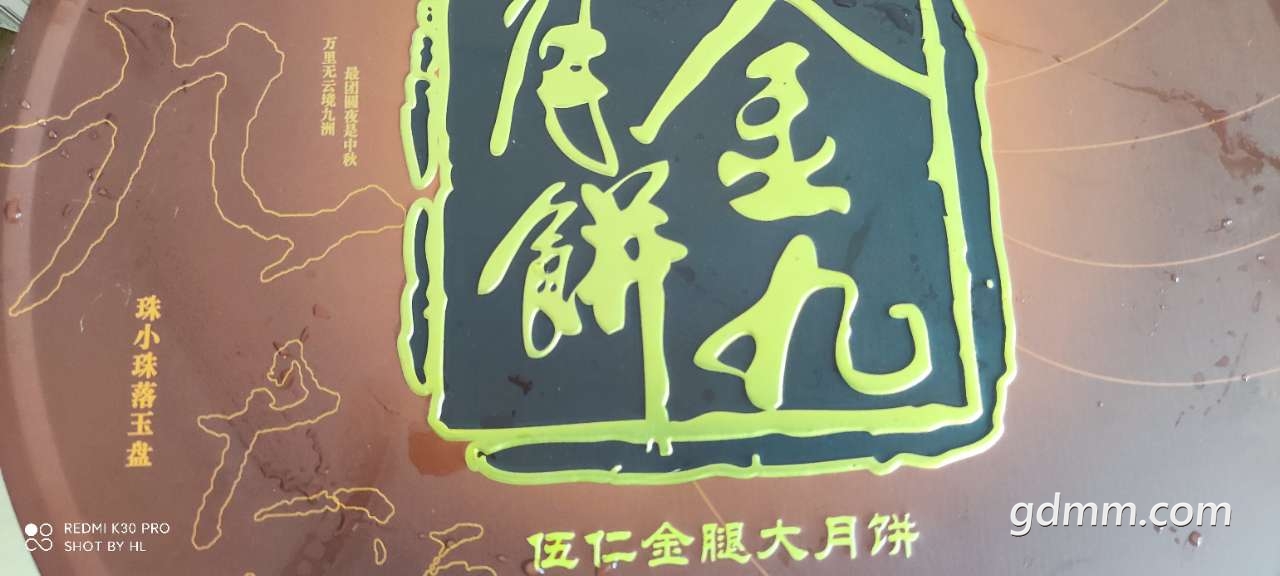 金九
月餅
最团圆夜是中秋
万里无云境九洲
珠小珠落玉盘
伍仁金腿大月饼
REDMI K30 PRO
SHOT BY HL
gdmm.com